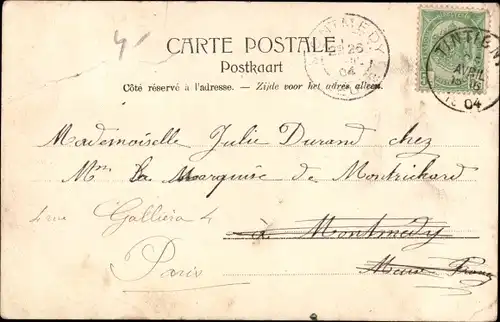 4
CARTE POSTALE
Postkaart
Côté réservé à l'adresse. — Zijde voor het adres alleen.
MONTMEDY
26
04
TINTIGNY
AVRIL
04
Mademoiselle Julie Durand chez
Mme La Marquise de Montrichard
4 rue Galliéra 4
à Montmédy
Paris
Meuse France